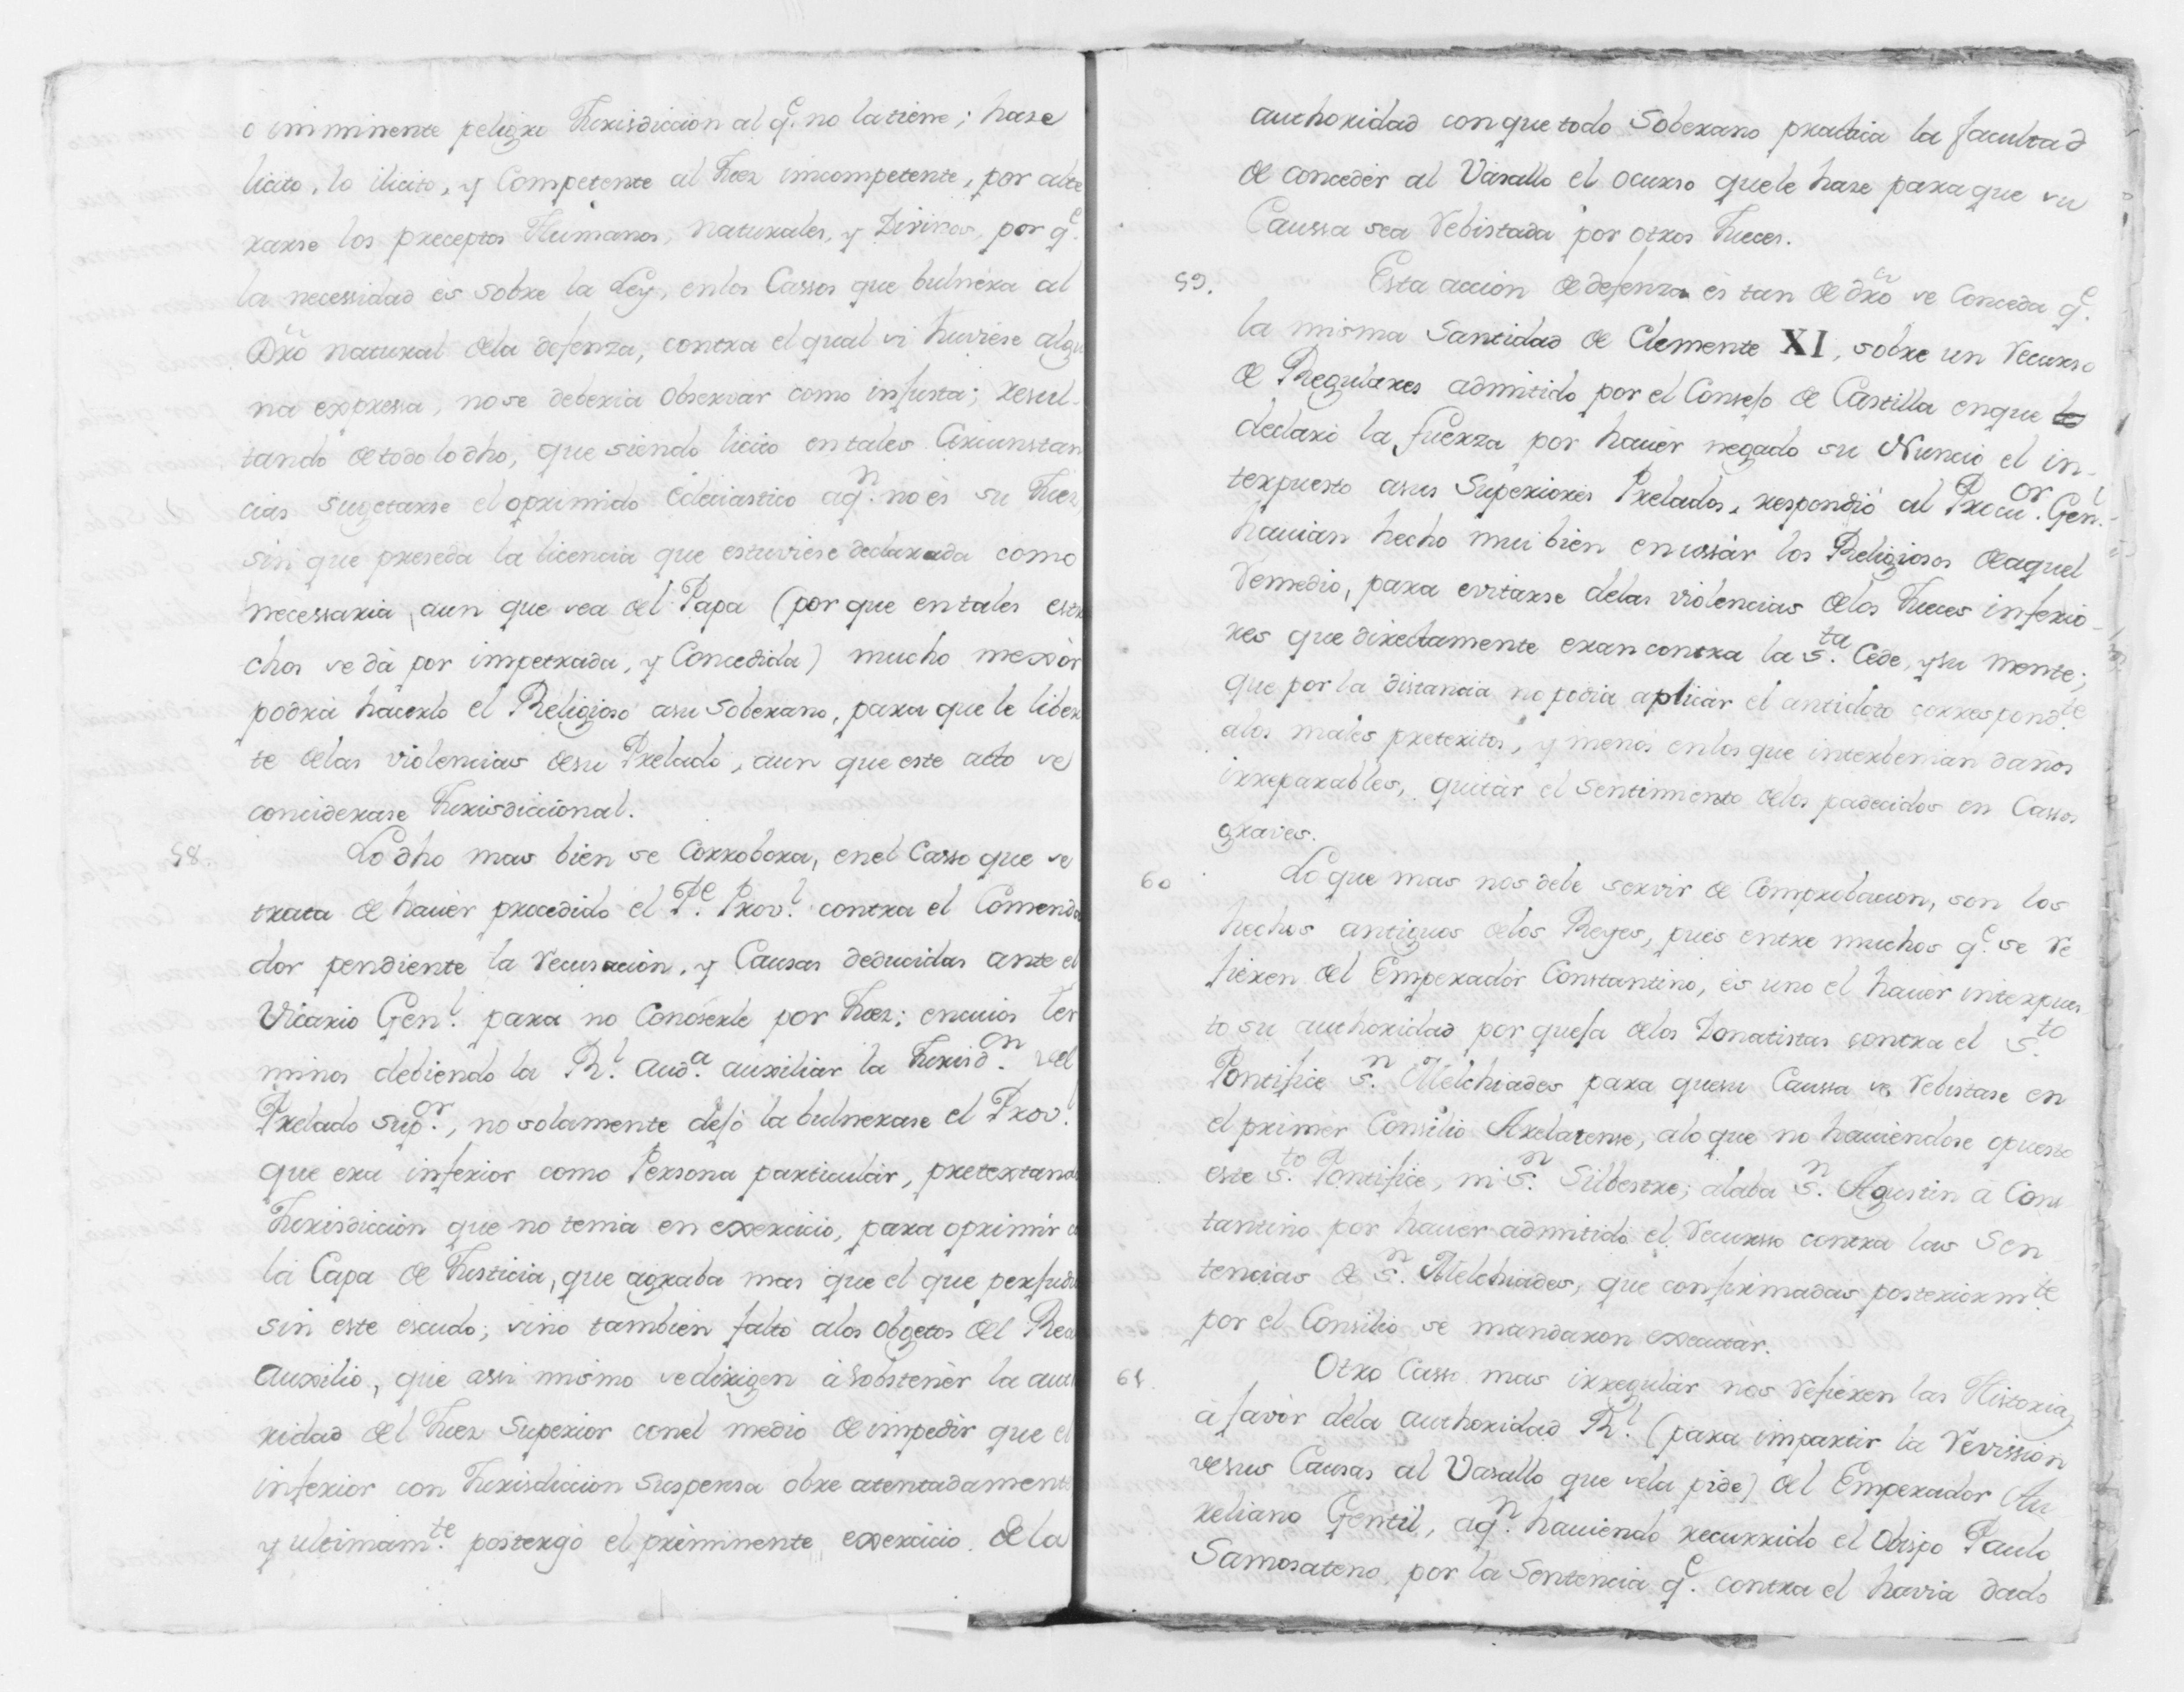 o imminente peligro Jurisdiccion al q.e no la tiene; hase
licito, lo ilicito, y Competente al Juez imcompetente, por alte
rarse los preceptos Humanos, Naturales, y Divinos, por q.e
la necessidad es sobre la Ley, enlos Cassos que bulnera al
Dro natural dela defenza, contra el qual si huviese algu
na expressa, nose deberia observar como injusta; resul-
tando detodo lo dho, que siendo licito entales Circunstan
cias sugetarse el oprimido Eclesiastico aq.n no es su Juez,
sin que preseda la licencia que estuviese declarada como
necessaria, aun que sea del Papa (por que entales estre
chos se dà por impetrada, y Concedida) mucho mexòr
podrà hacerlo el Religioso asu Soberano, para que le liber
te delas violencias desu Prelado, aun que este acto se
conciderase Jurisdiccional.
58. Lo dho mas bien se Corrobora, enel Casso que se
trata de hauer procedido el P.e Prov.l contra el Comenda
dor pendiente la recusación, y Causas deducidas ante el
Vicario Gen.l para no Conoserle por Juez; encuios ter
minos debiendo la R.l Aud.a auxiliar la Jurisd.on del
Prelado sup.or, nosolamente dejó la bulnerase el Prov.l
que era inferior como Persona particular, pretextando
Jurisdiccion que no tenia en exercicio, para oprimir con
la Capa de Justicia, que agraba mas que el que perjudica
sin este escudo; sino tambien faltó alos Obgetos del Real
Auxilio, que assi mismo sedirigen à sobstenèr la auto
ridad del Juez Superior conel medio deimpedir que el
inferior con Jurisdiccion suspensa obre atentadamente
y ultimam.te postergó el preminente exercicio de la
authoridad conque todo Soberano practica la facultad
de conceder al Vasallo el ocurso quele hase paraque su
Caussa sea rebistada por otros Jueces.
59. Esta acción dedefenza es tan de dro se Conceda q.e
la misma Santidad de Clemente XI, sobre un recurso
de Regulares admitido por el Consejo de Castilla enque
declaró la fuerza por hauer negado su Nuncio el in-
terpuesto asus Superiores Prelados, respondió al Procu.or Gen.l
hauian hecho mui bien enussàr los Religiosos deaquel
remedio, para evitarse delas violencias delos Jueces inferio-
res que directamente eran contra la S.ta Cede, y su mente;
que por la distancia no podia aplicàr el antidoto correspond.te
alos males preteritos, y menos enlos que interbenian daños
irreparables, quitàr el sentimiento delos padecidos en Cassos
graves.
60 Lo que mas nos debe servir de Comprobacion, son los
hechos antiguos delos Reyes, pues entre muchos q.e se re
fieren del Emperador Constantino, es uno el hauer interpues
to su authoridad por queja delos Donatistas contra el S.to
Pontifice S.n Melchiades para quesu Caussa se rebistase en
el primer Consilio Arelatense, alo que no hauiendose opuesto
este S.to Pontifice, ni S.n Silbestre; alaba S.n Agustin à Cons
tantino por hauer admitido el recursso contra las Sen
tencias de S.n Melchiades, que confirmadas posteriorm.te
por el Consilio se mandaron executàr.
61 Otro Casso mas irregulàr nos refieren las Historias,
à favòr dela authoridad R.l (para impartir la revission
desus Causas al Vasallo que sela pide) del Emperador Au
reliano Gentil, aq.n hauiendo recurrido el Obispo Paulo
Samosateno, por la Sentencia q.e contra el havia dado